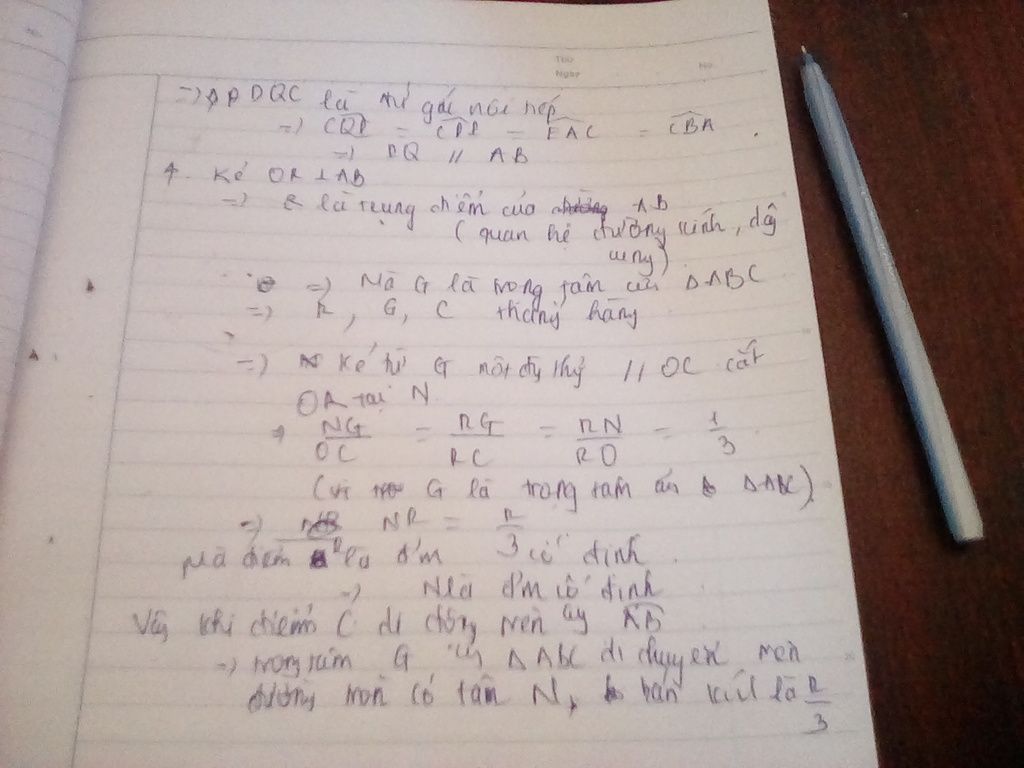 Thứ
Ngày
No.
=> PDQC là tứ giác nội tiếp
=> CQD = CPD = EAC = CBA
=> DQ // AB
4. Kẻ OR ⊥ AB
=> R là trung điểm của AB
(quan hệ đường kính, dây
cung)
=> Mà G là trọng tâm của ΔABC
=> R, G, C thẳng hàng
=> Kẻ từ G một đg thg // OC cắt
OR tại N
=> NG/OC = RG/RC = RN/RO = 1/3
(vì G là trọng tâm của ΔABC)
=> NR = R/3 cố định
Mà điểm R là đ'm
=> N là đ'm cố định
Vậy khi điểm C di động trên cung AB
=> trọng tâm G của ΔABC di chuyển trên
đường tròn có tâm N, bán kính là R/3